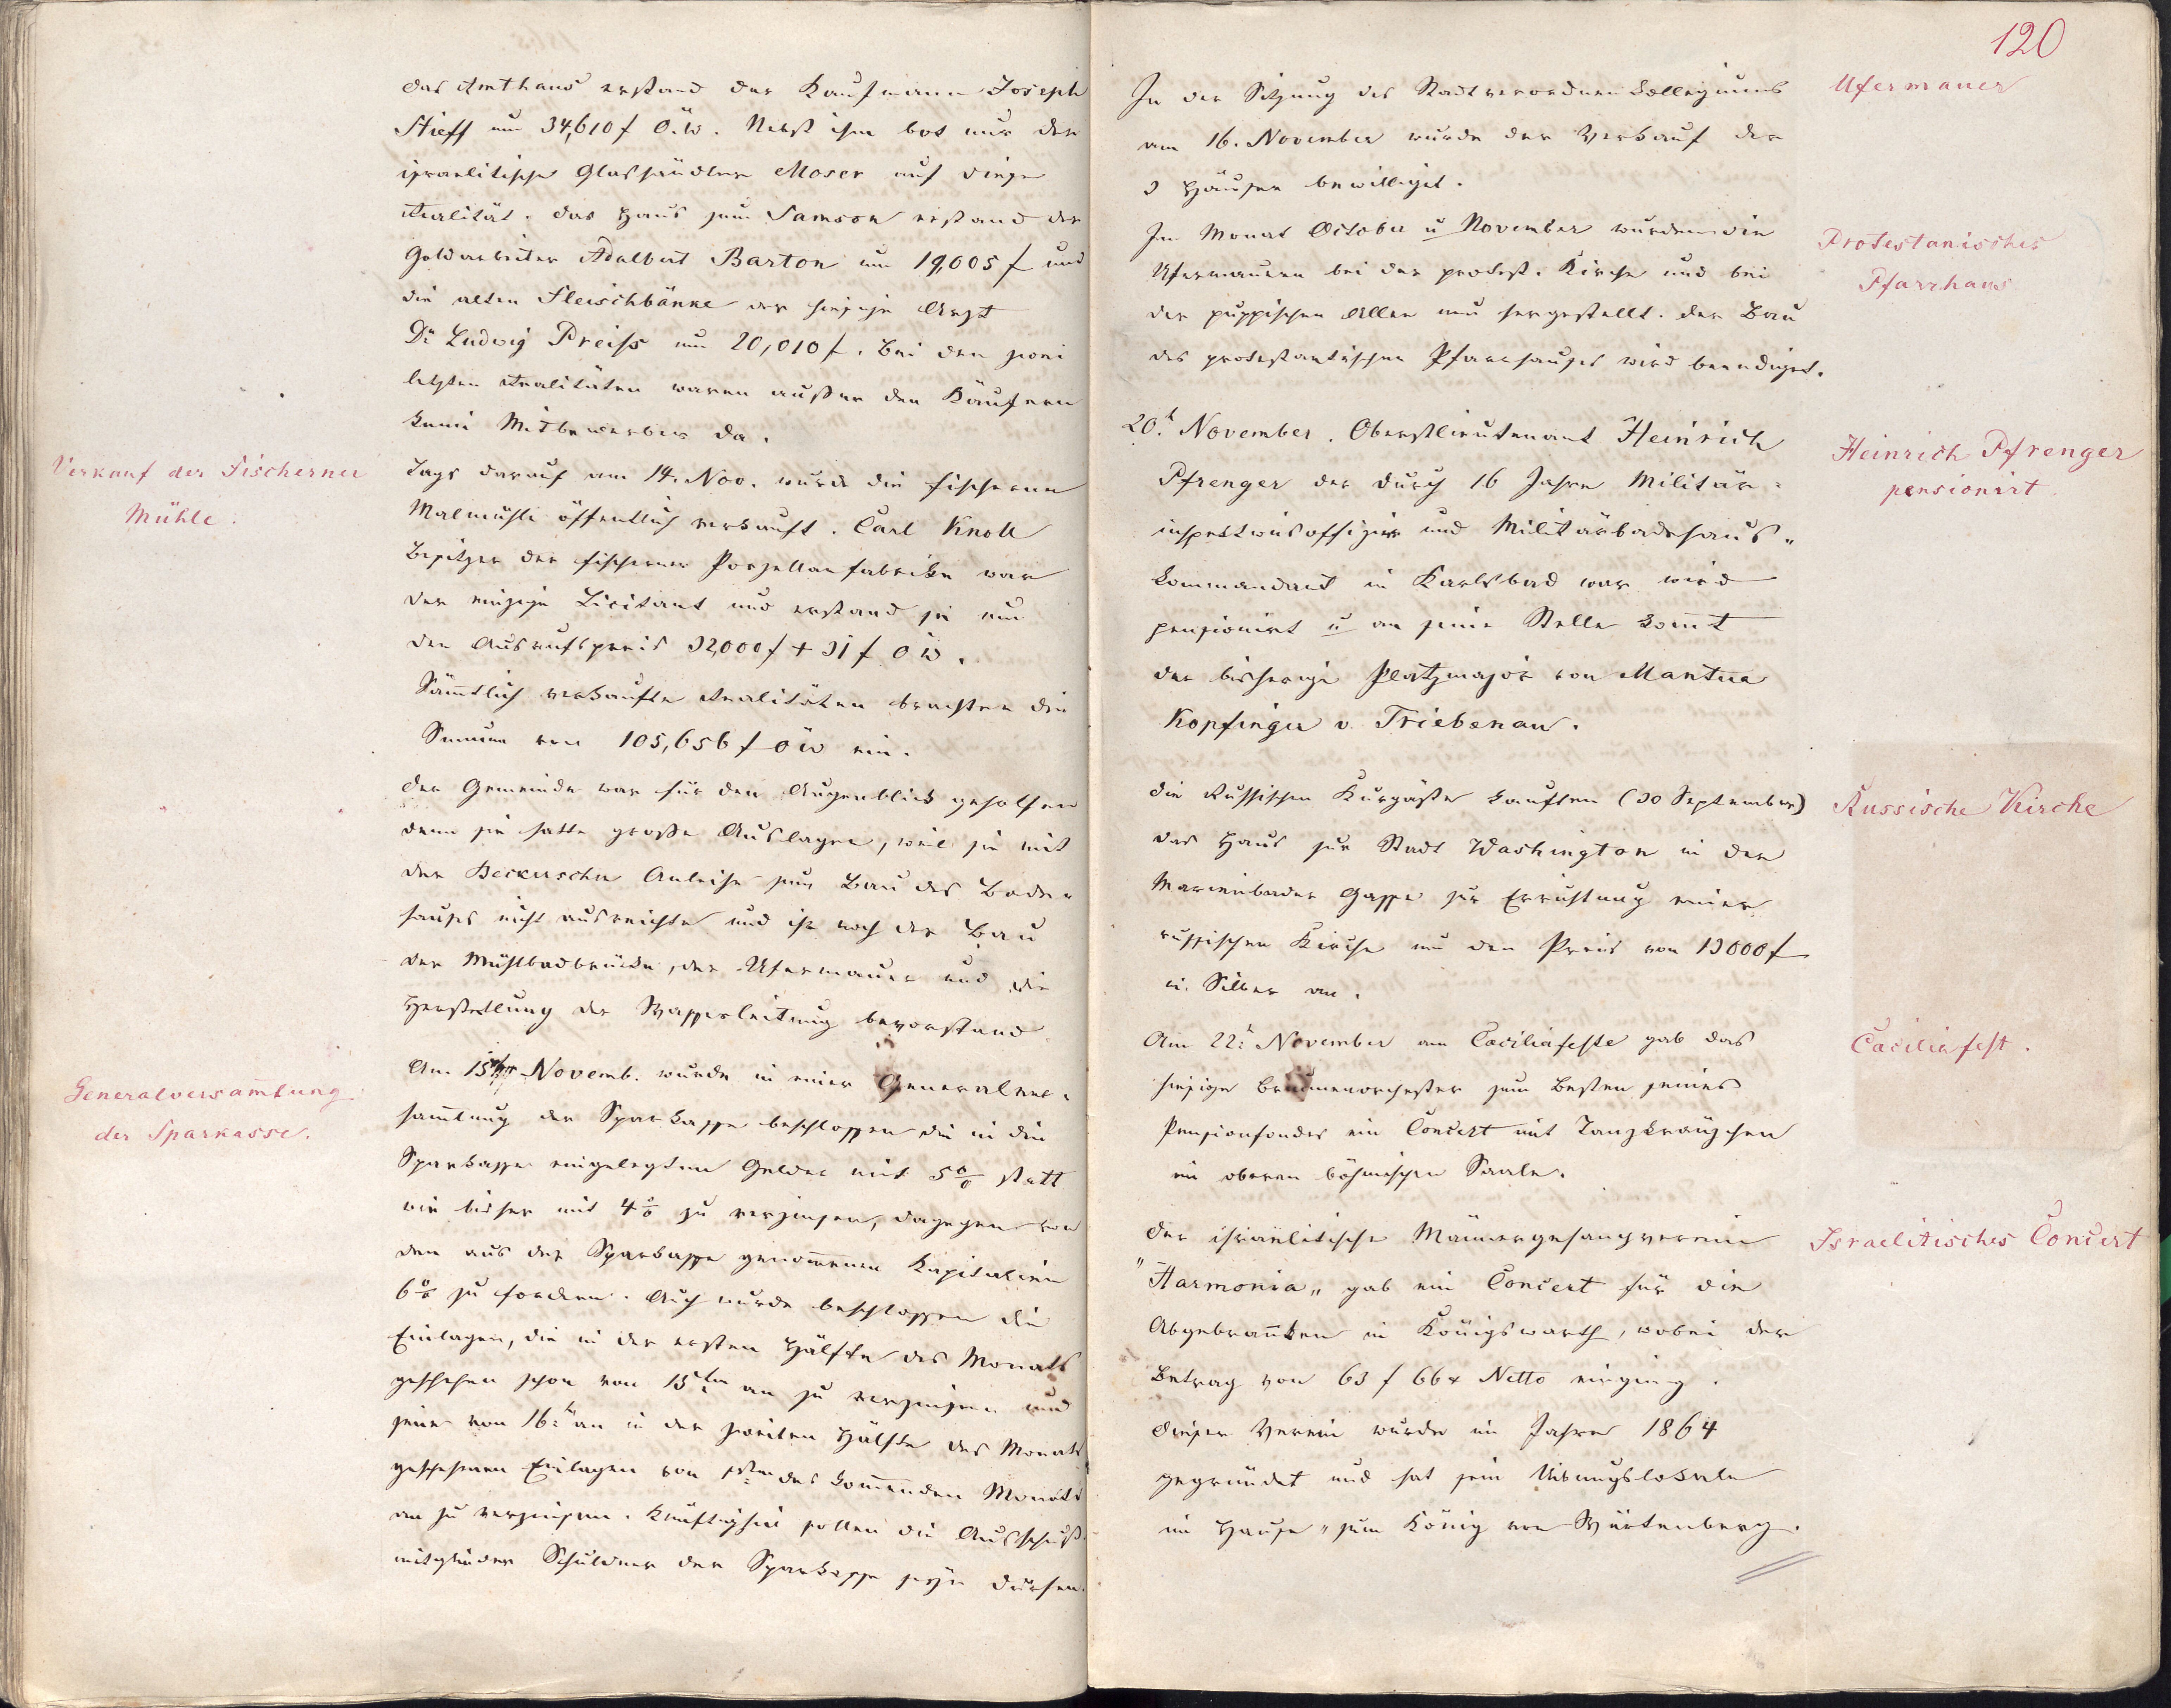 das Amthaus erstand der Kaufmann Joseph
Stieff um 34,610 f Ö.W. Nebst ihm bot nur der
israelitische Glashändler Moser auf diese
Realität. Das Haus zum Samson erstand der
Goldarbeiter Adalbert Barton um 19,005 f und
die alten Fleischbänke der hiesige Arzt
Dr Ludwig Preiss um 20,010 f. Bei den zwei
letzten Realitäten waren außer den Käufern
keine Mitbewerber da.
Verkauf der Fischerner
Mühle.
Tags darauf am 14. Nov. wurde die Fischerner
Malmühle öffentlich verkauft. Carl Knoll
Besitzer der Fischerner Porzellanfabrike war
der einzige Licitant und erstand sie um
den Ausrufspreis 32,000 f + 31 f ÖW.
Sämtlich verkaufte Realitäten brachten die
Summe von 105,656 f ÖW ein.
Der Gemeinde war für den Augenblick geholfen
denn sie hatte große Auslagen, weil sie mit
der Beckerschen Anleihe zum Bau des Bade-
hauses nicht ausreichte und ihr noch der Bau
der Mühlbadbrücke, der Ufermauer und die
Herstellung der Wasserleitung bevorstand
Generalversam̅lung
der Sparkasse.
Am 15ten Novemb. wurde in einer Generalver-
sam̅lung der Sparkasse beschlossen die in die
Sparkasse eingelegten Gelder mit 5% statt
wie bisher mit 4% zu verzinsen, dagegen von
den aus der Sparkasse genom̅enen Kapitalien
6% zu fordern. Auch wurde beschlossen die
Einlagen, die in der ersten Hälfte des Monats
geschehen schon vom 15ten an zu verzinsen und
jene vom 16.t an in der zweiten Hälfte des Monats
geschehenen Einlagen vom 1sten des kom̅enden Monats
an zu verzinsen. Künftighin sollen die Ausschuß-
mitglieder Schuldner der Sparkasse seyn dürfen.
120
Ufermauer
In der Sitzung des Stadtverordneten Collegiums
am 16. November wurde der Verkauf der
3 Häuser bewilliget.
Protestanisches
Pfarrhaus
Im Monat October u November wurden die
Ufermauern bei der protest. Kirche und bei
der puppischen Allee neu hergestellt. Der Bau
des protestantischen Pfarrhauses wird beendiget.
Heinrich Pfrenger
pensionirt.
20.t November. Oberstlieutenant Heinrich
Pfrenger der durch 16 Jahre Militär-
inspektionsoffizier und Militärbadehaus-
kommandant in Karlsbad war wird
pensionirt u an seine Stelle kom̅t
der bisherige Platzmajor von Mantua
Kopfinger v. Triebenau.
Russische Kirche
Die Russischen Kurgäste kauften (30 September)
das Haus zur Stadt Washington in der
Marienbader Gasse zur Errichtung einer
russischen Kirche um den Preis von 13000 f
in Silber an.
Cäciliafest.
Am 22t November am Cäciliafeste gab das
hiesige Brunnenorchester zum Besten seines
Pensionsfondes ein Concert mit Tanzkränzchen
im oberen böhmischen Saale.
Israelitisches Concert
Der israelitische Männergesangverein
"Harmonia" gab ein Concert für die
Abgebran̅ten in Königswarth, wobei der
Betrag von 63 f 66 x Netto einging.
Dieser Verein wurde im Jahre 1864
gegründet und hat sein Uibungslokale
im Hause "zum König von Würtenberg.